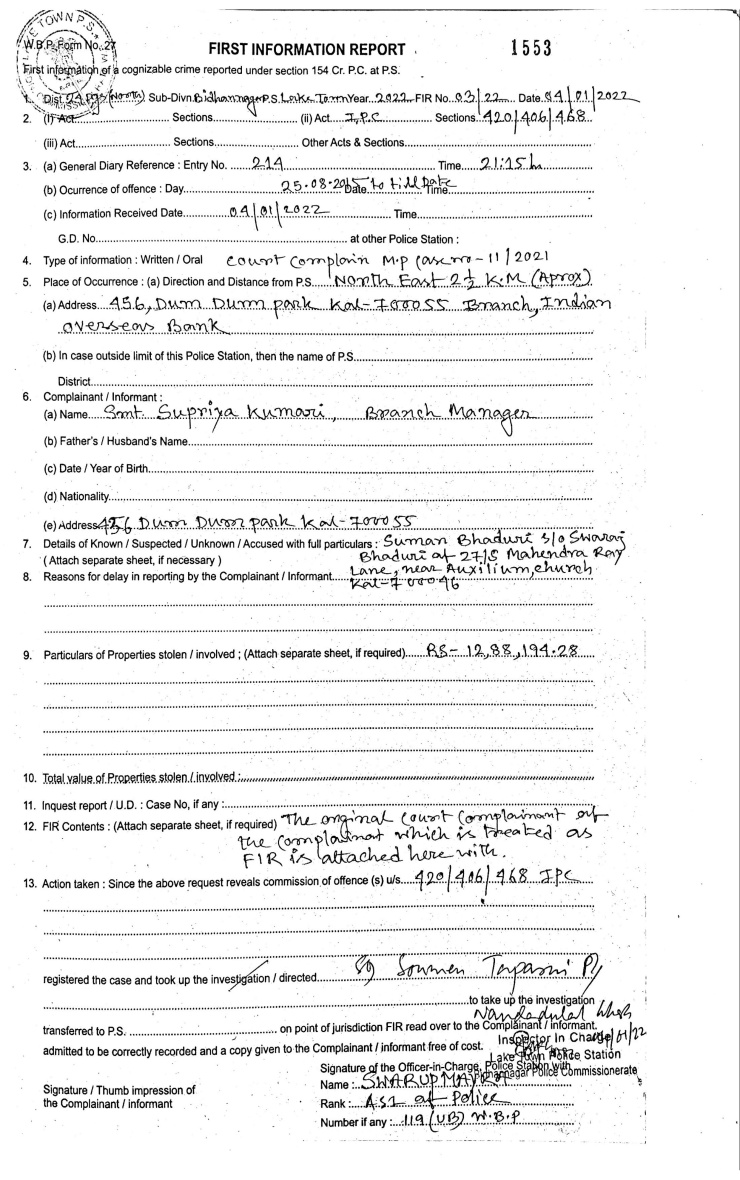 TOWN P.S.
W.B.P. Form No. 27
FIRST INFORMATION REPORT
1553
First information of a cognizable crime reported under section 154 Cr. P.C. at P.S.
1. Dist. 24 Pgs (North) Sub-Divn. Bidhannagar P.S. Lake Town Year 2022 FIR No. 03/22 Date 04/01/2022
2. (i) Act Sections (ii) Act I.P.C Sections 420/406/468
(iii) Act Sections Other Acts & Sections
3. (a) General Diary Reference : Entry No. 214 Time 21:15 h
(b) Ocurrence of offence : Day 25-08-2015 Date to till Date Time
(c) Information Received Date 04/01/2022 Time
G.D. No. at other Police Station :
4. Type of information : Written / Oral Court Complain M.P Case no - 11/2021
5. Place of Occurrence : (a) Direction and Distance from P.S. North East 2½ K.M (Aprox)
(a) Address 456, Dum Dum park Kol-700055 Branch, Indian
overseas Bank
(b) In case outside limit of this Police Station, then the name of P.S.
District
6. Complainant / Informant :
(a) Name Smt. Supriya Kumari, Branch Manager
(b) Father's / Husband's Name
(c) Date / Year of Birth
(d) Nationality
(e) Address 456 Dum Dum park Kol-700055
7. Details of Known / Suspected / Unknown / Accused with full particulars : Suman Bhaduri s/o Swaraj
( Attach separate sheet, if necessary ) Bhaduri of 27/5 Mahendra Roy
8. Reasons for delay in reporting by the Complainant / Informant Lane, near Auxilium, church
Kol-700046
9. Particulars of Properties stolen / involved ; (Attach separate sheet, if required) RS- 12,88,194.28
10. Total value of Properties stolen / involved :
11. Inquest report / U.D. : Case No, if any :
12. FIR Contents : (Attach separate sheet, if required) The original Court Complainant of
the complainat which is treated as
FIR is attached here with.
13. Action taken : Since the above request reveals commission of offence (s) u/s 420/406/468 IPC
registered the case and took up the investigation / directed Soumen
to take up the investigation
Nandadulal Ghosh
transferred to P.S. on point of jurisdiction FIR read over to the Complainant / informant.
Inspector In Charge
admitted to be correctly recorded and a copy given to the Complainant / informant free of cost.
Lake Town Police Station
Signature of the Officer-in-Charge, Police Station with
Bidhannagar Police Commissionerate
Signature / Thumb impression of
the Complainant / informant
Name : SWARUP
Rank : ASI of Police
Number if any : 119 (UB) W.B.P